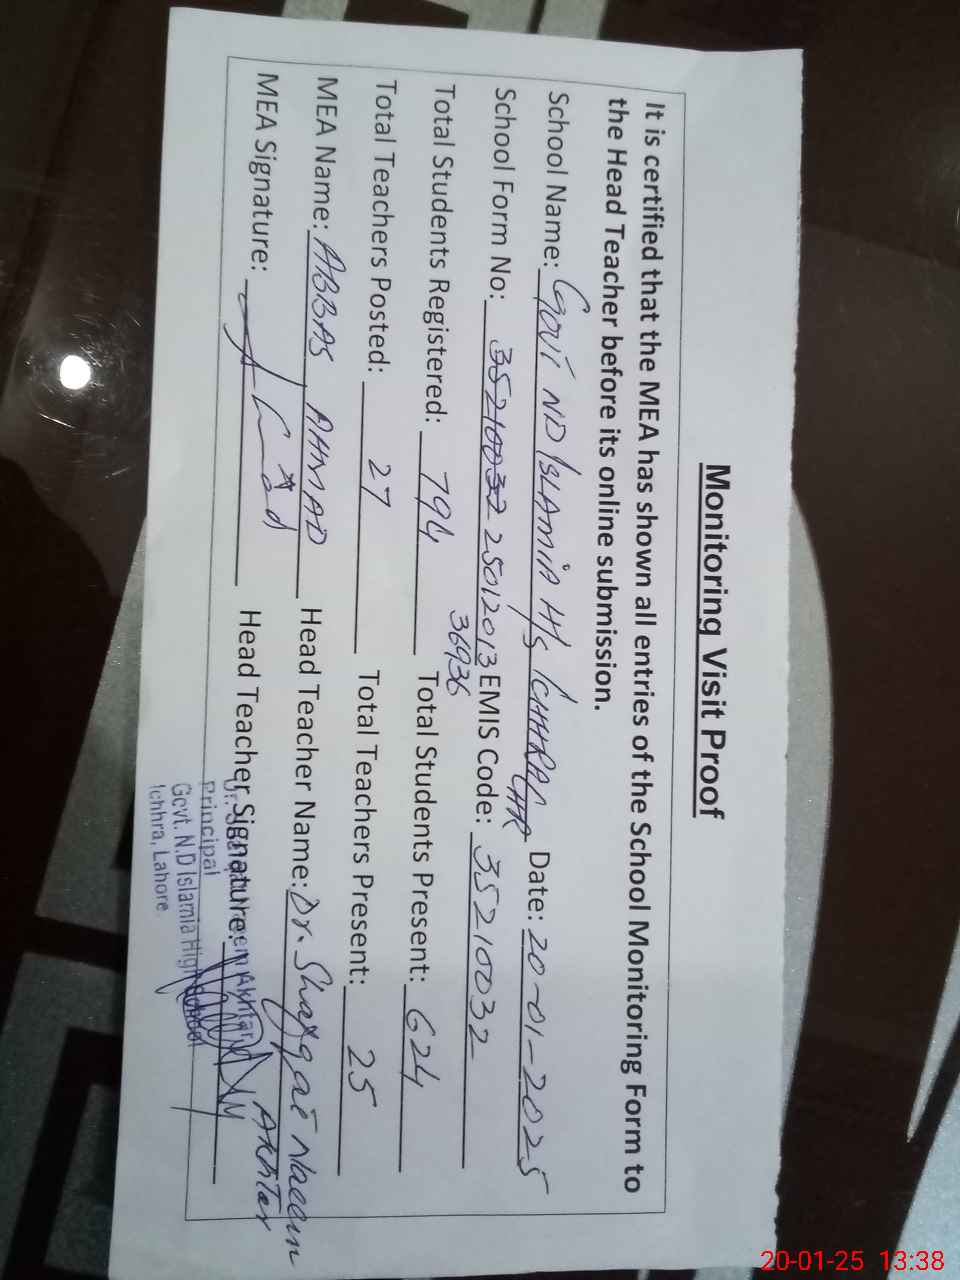 Monitoring Visit Proof
It is certified that the MEA has shown all entries of the School Monitoring Form to
the Head Teacher before its online submission.
School Name: Govt ND ISLAMIA H/S ICHHRA LHR Date: 20-01-2025
School Form No: 35210032 25012013 EMIS Code: 35210032
36936
Total Students Registered: 794 Total Students Present: 624
Total Teachers Posted: 27 Total Teachers Present: 25
MEA Name: ABBAS AHMAD Head Teacher Name: Dr. Naeem
Akhter
MEA Signature: Head Teacher Signature:
Dr. Akhtar
Principal
Govt. N.D Islamia High School
Ichhra, Lahore
20-01-25 13:38